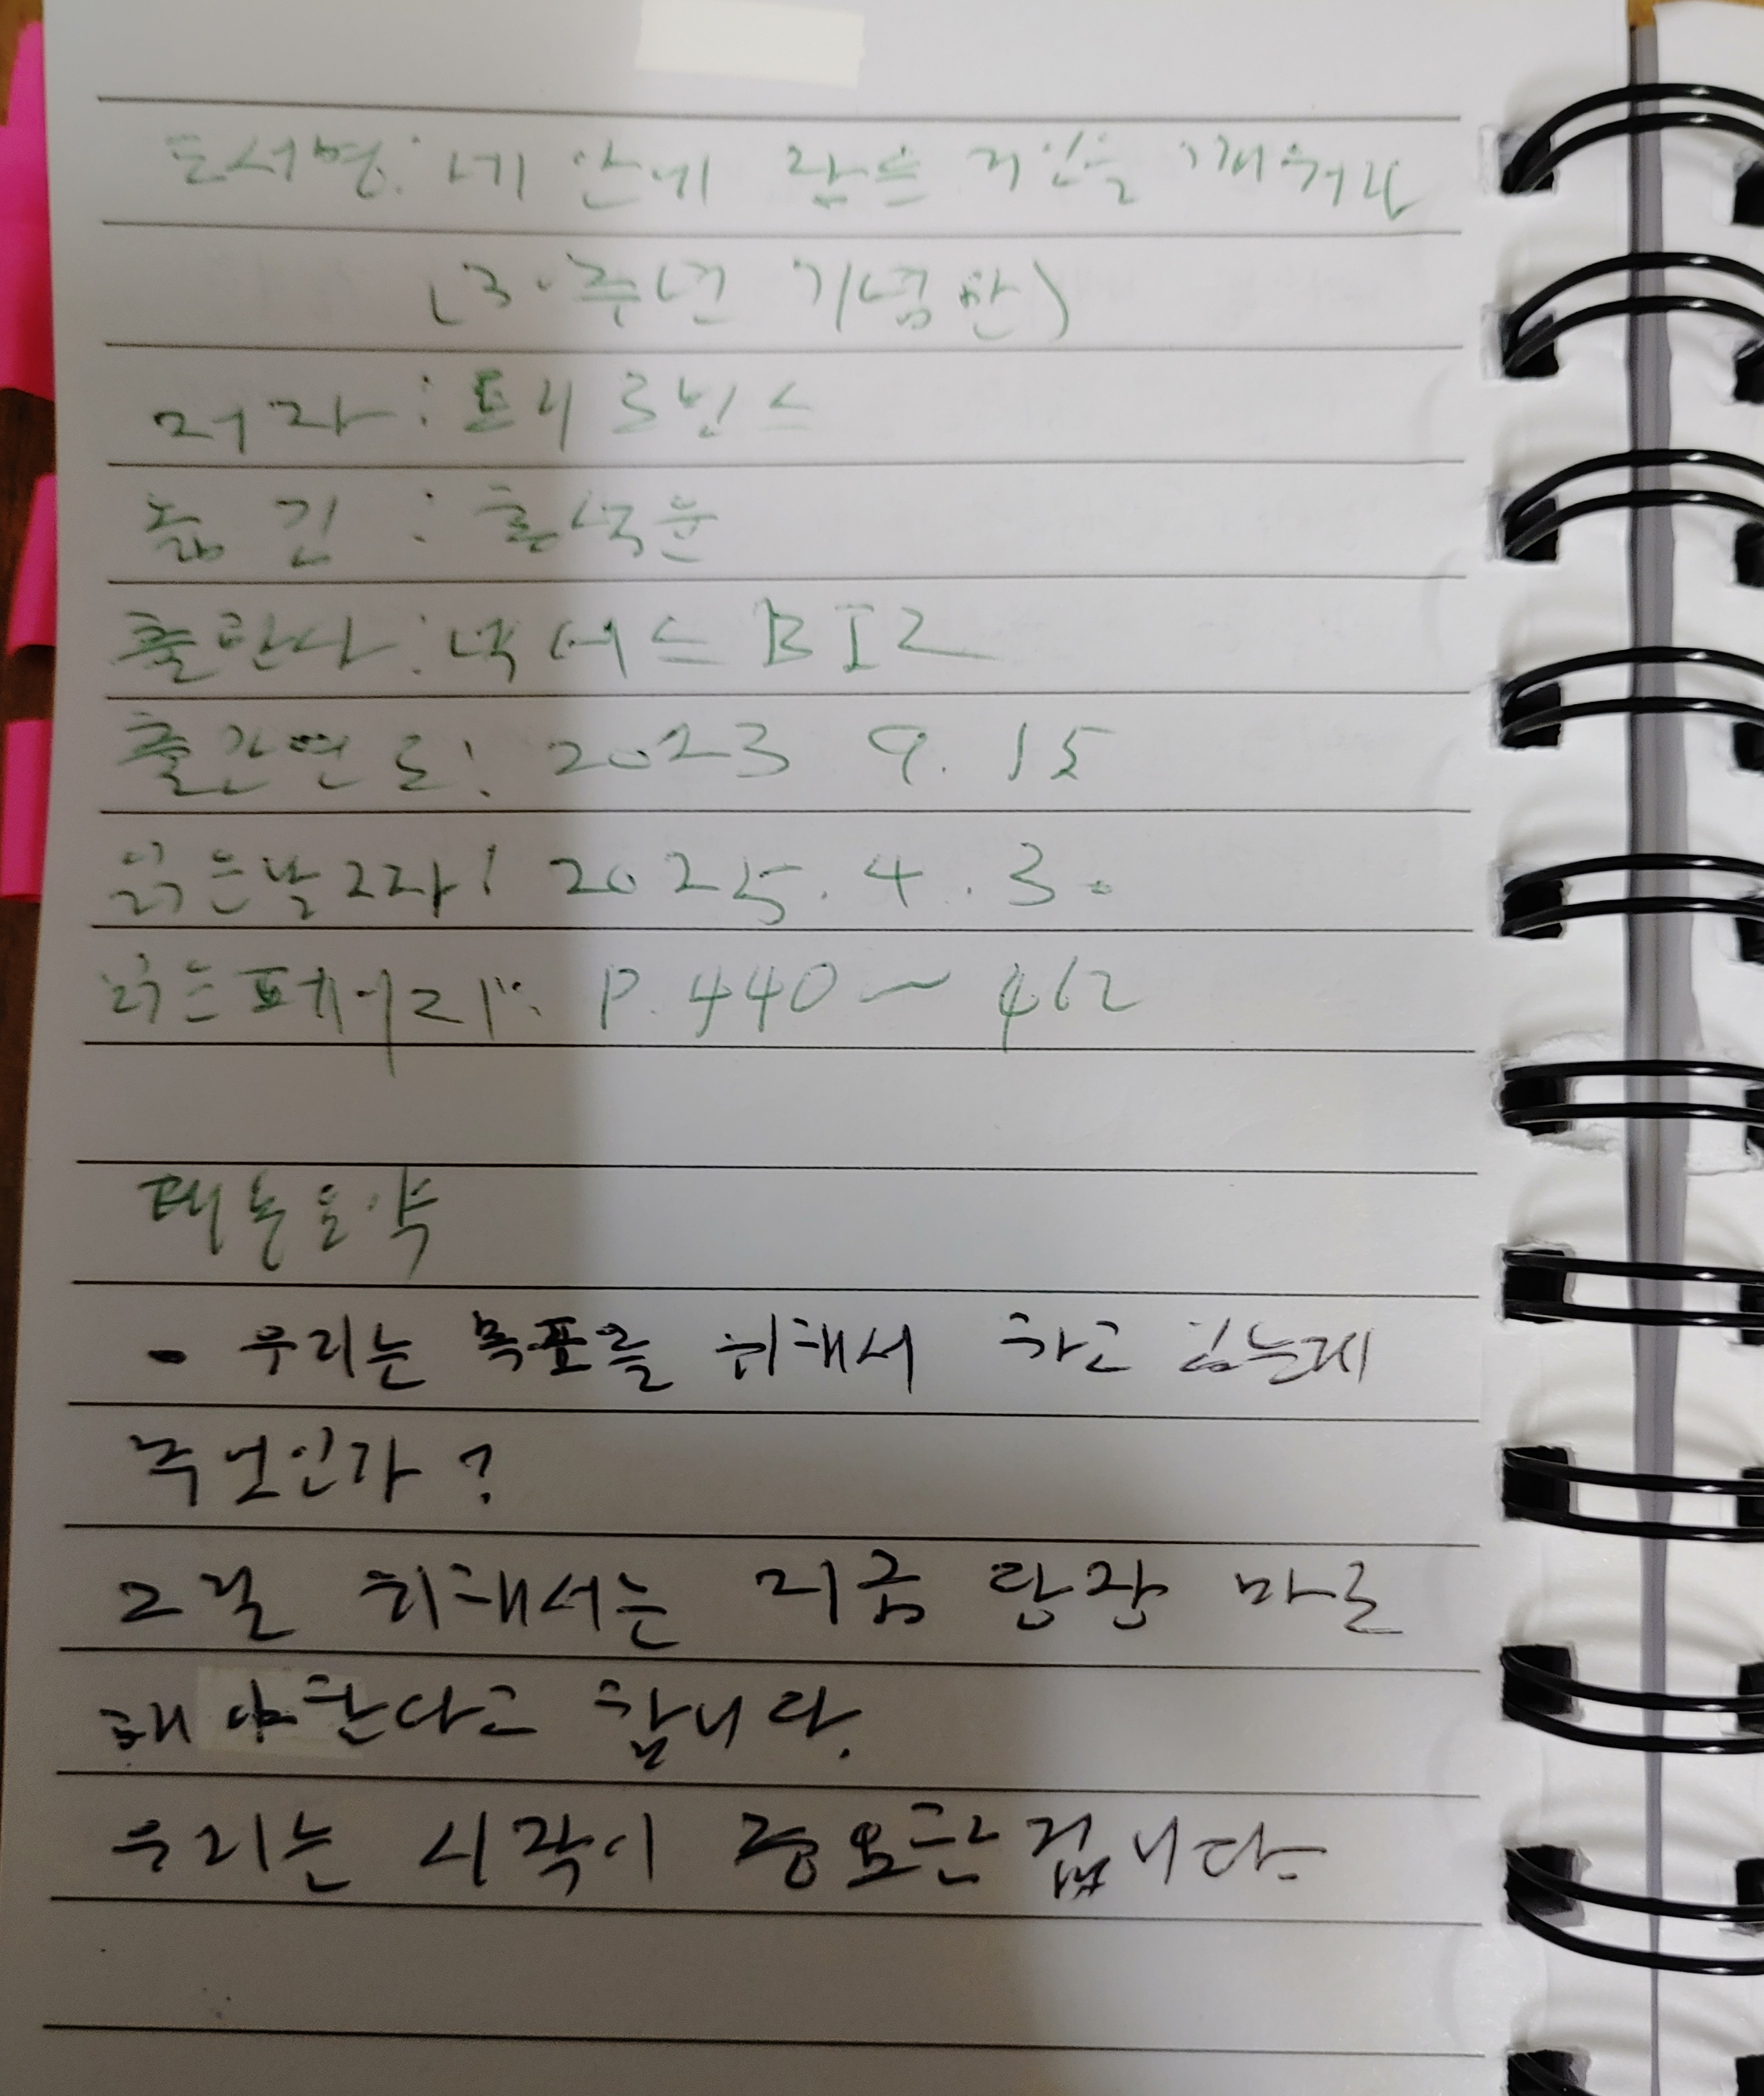 도서명: 네 안에 잠든 거인을 깨워라
(30주년 기념판)
저자: 토니 로빈스
옮긴: 홍석윤
출판사: 넥서스 BIZ
출간연도: 2023 9. 15
읽은날짜: 2025. 4. 30
읽은페이지: P. 440~462
책논요약
- 우리는 목표를 위해서 하고 있는게
무엇인가?
그걸 위해서는 지금 당장 바로
해야한다고 합니다.
우리는 시작이 중요한 겁니다